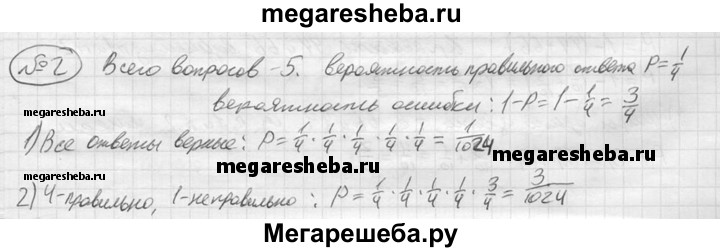 megaresheba.ru
№2 Всего вопросов -5. вероятность правильного ответа P=1/4
megaresheba.ru megaresheba.ru
вероятность ошибки: 1-P=1-1/4=3/4
1) Все ответы верные: P=1/4·1/4·1/4·1/4·1/4=1/1024
megaresheba.ru megaresheba.ru
2) 4-правильно, 1-неправильно: P=1/4·1/4·1/4·1/4·3/4=3/1024
Мегарешеба.ру